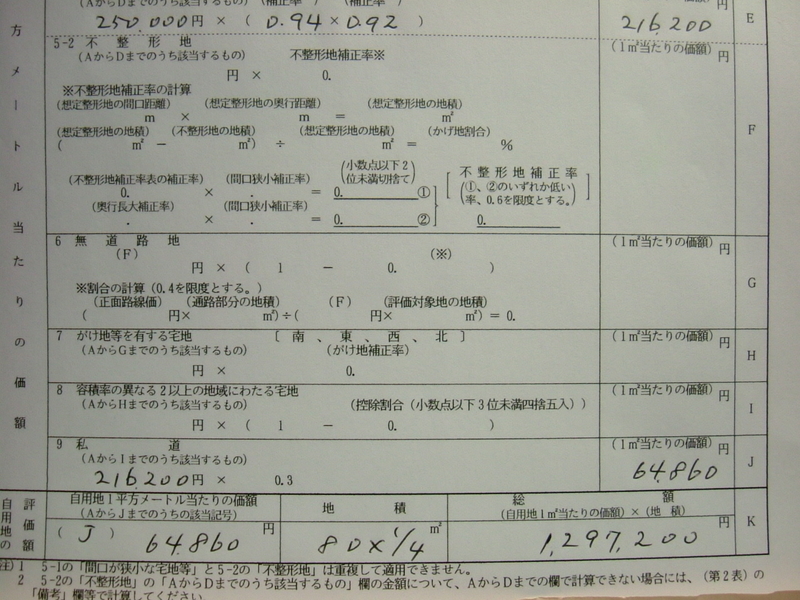 (補正率) (補正率)
250.000円 × ( 0.94×0.92 ) 円
216.200 E
5-2 不整形地 (1㎡当たりの価額)
(AからDまでのうち該当するもの) 不整形地補正率※ 円
円 × 0.
※不整形地補正率の計算
(想定整形地の間口距離) (想定整形地の奥行距離) (想定整形地の地積)
m × m = ㎡
(想定整形地の地積) (不整形地の地積) (想定整形地の地積) (かげ地割合) F
( ㎡ − ㎡) ÷ ㎡ = %
(小数点以下2位未満切捨て)
(不整形地補正率表の補正率) (間口狭小補正率)
0. × . = 0. ①
不整形地補正率
(①、②のいずれか低い率、0.6を限度とする。)
(奥行長大補正率) (間口狭小補正率)
. × . = 0. ② 0.
6 無道路地 (1㎡当たりの価額)
(F) (※) 円
円 × ( 1 − 0. )
※割合の計算(0.4を限度とする。) G
(正面路線価) (通路部分の地積) (F) (評価対象地の地積)
( 円× ㎡)÷( 円× ㎡) = 0.
7 がけ地等を有する宅地 [ 南 、 東 、 西 、 北 ] (1㎡当たりの価額)
(AからGまでのうち該当するもの) (がけ地補正率) 円 H
円 × 0.
8 容積率の異なる2以上の地域にわたる宅地 (1㎡当たりの価額)
(AからHまでのうち該当するもの) (控除割合(小数点以下3位未満四捨五入)) 円 I
円 × ( 1 − 0. )
9 私道 (1㎡当たりの価額)
(AからIまでのうち該当するもの) 円 J
216,200円 × 0.3 64.860
自用地の評価額
自用地1平方メートル当たりの価額 地積 総額
(AからJまでのうちの該当記号) (自用地1㎡当たりの価額) × (地積) K
( J ) 64.860 円 80×1/4 ㎡ 1,297,200 円
方メートル当たりの価額
(注) 1 5-1の「間口が狭小な宅地等」と5-2の「不整形地」は重複して適用できません。
2 5-2の「不整形地」の「AからDまでのうち該当するもの」欄の金額について、AからDまでの欄で計算できない場合には、(第2表)の
「備考」欄等で計算してください。